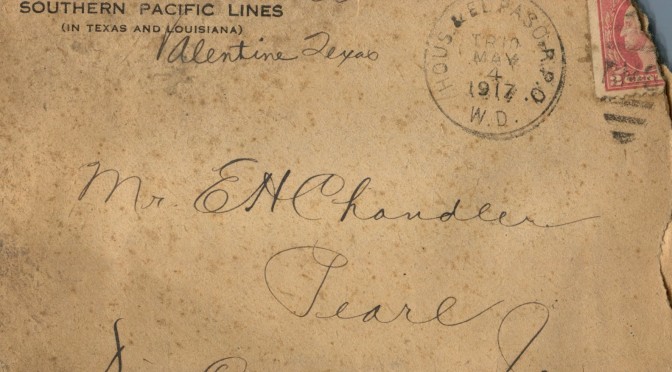 SOUTHERN PACIFIC LINES
(IN TEXAS AND LOUISIANA)
Valentine Texas
HOUS. & EL PASO R.P.O.
TR10
MAY
4
1917
W.D.
Mr. E H Chandler
Pearl